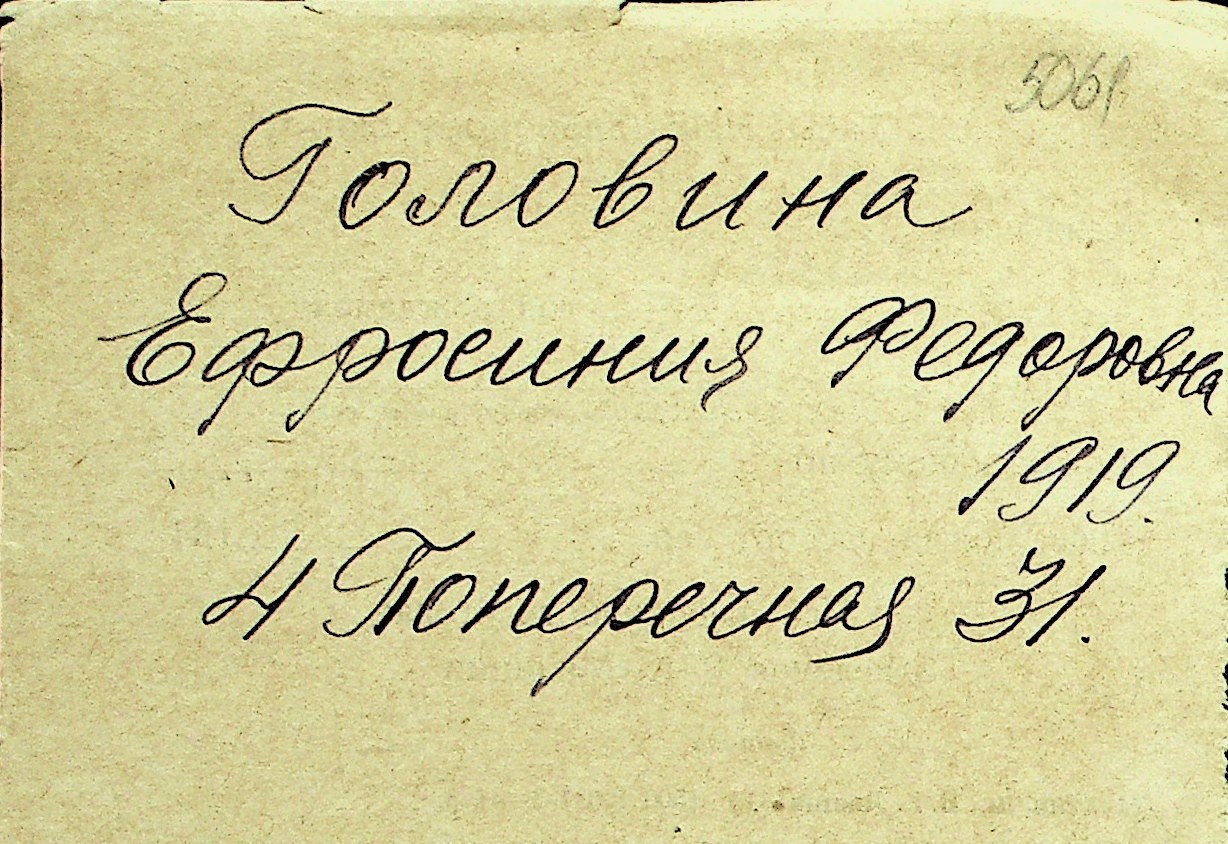 5061
Головина
Ефросиния Федоровна
1919.
4 Поперечная 31.